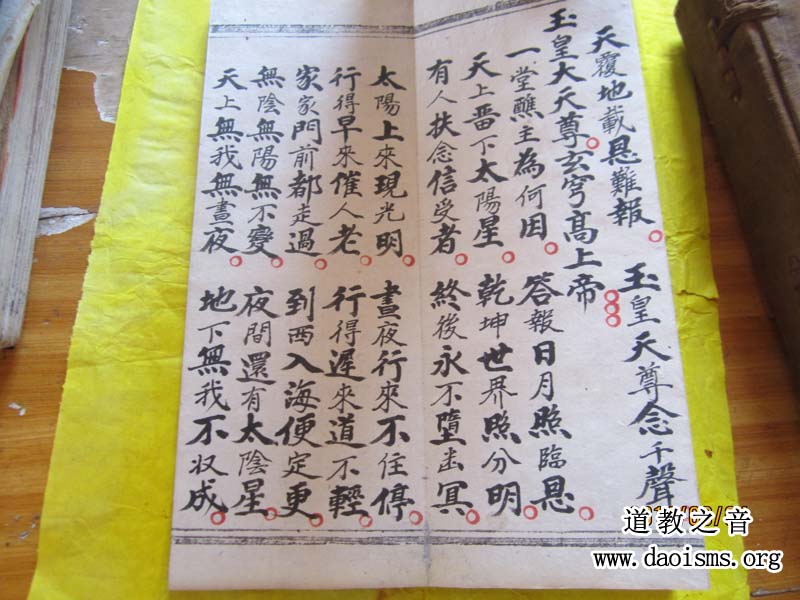 天覆地載恩難報 玉皇天尊念千聲
玉皇大天尊玄穹高上帝
一堂醮主為何因 答報日月照臨恩
天上番下太陽星 乾坤世界照分明
有人扶念信受者 終後永不墮幽冥
太陽上來現光明 晝夜行來不住停
行得早來催人老 行得遲來道不輕
家家門前都走過 到西入海便定更
無陰無陽無不變 夜間還有太陰星
天上無我無晝夜 地下無我不収成
道教之音
www.daoisms.org